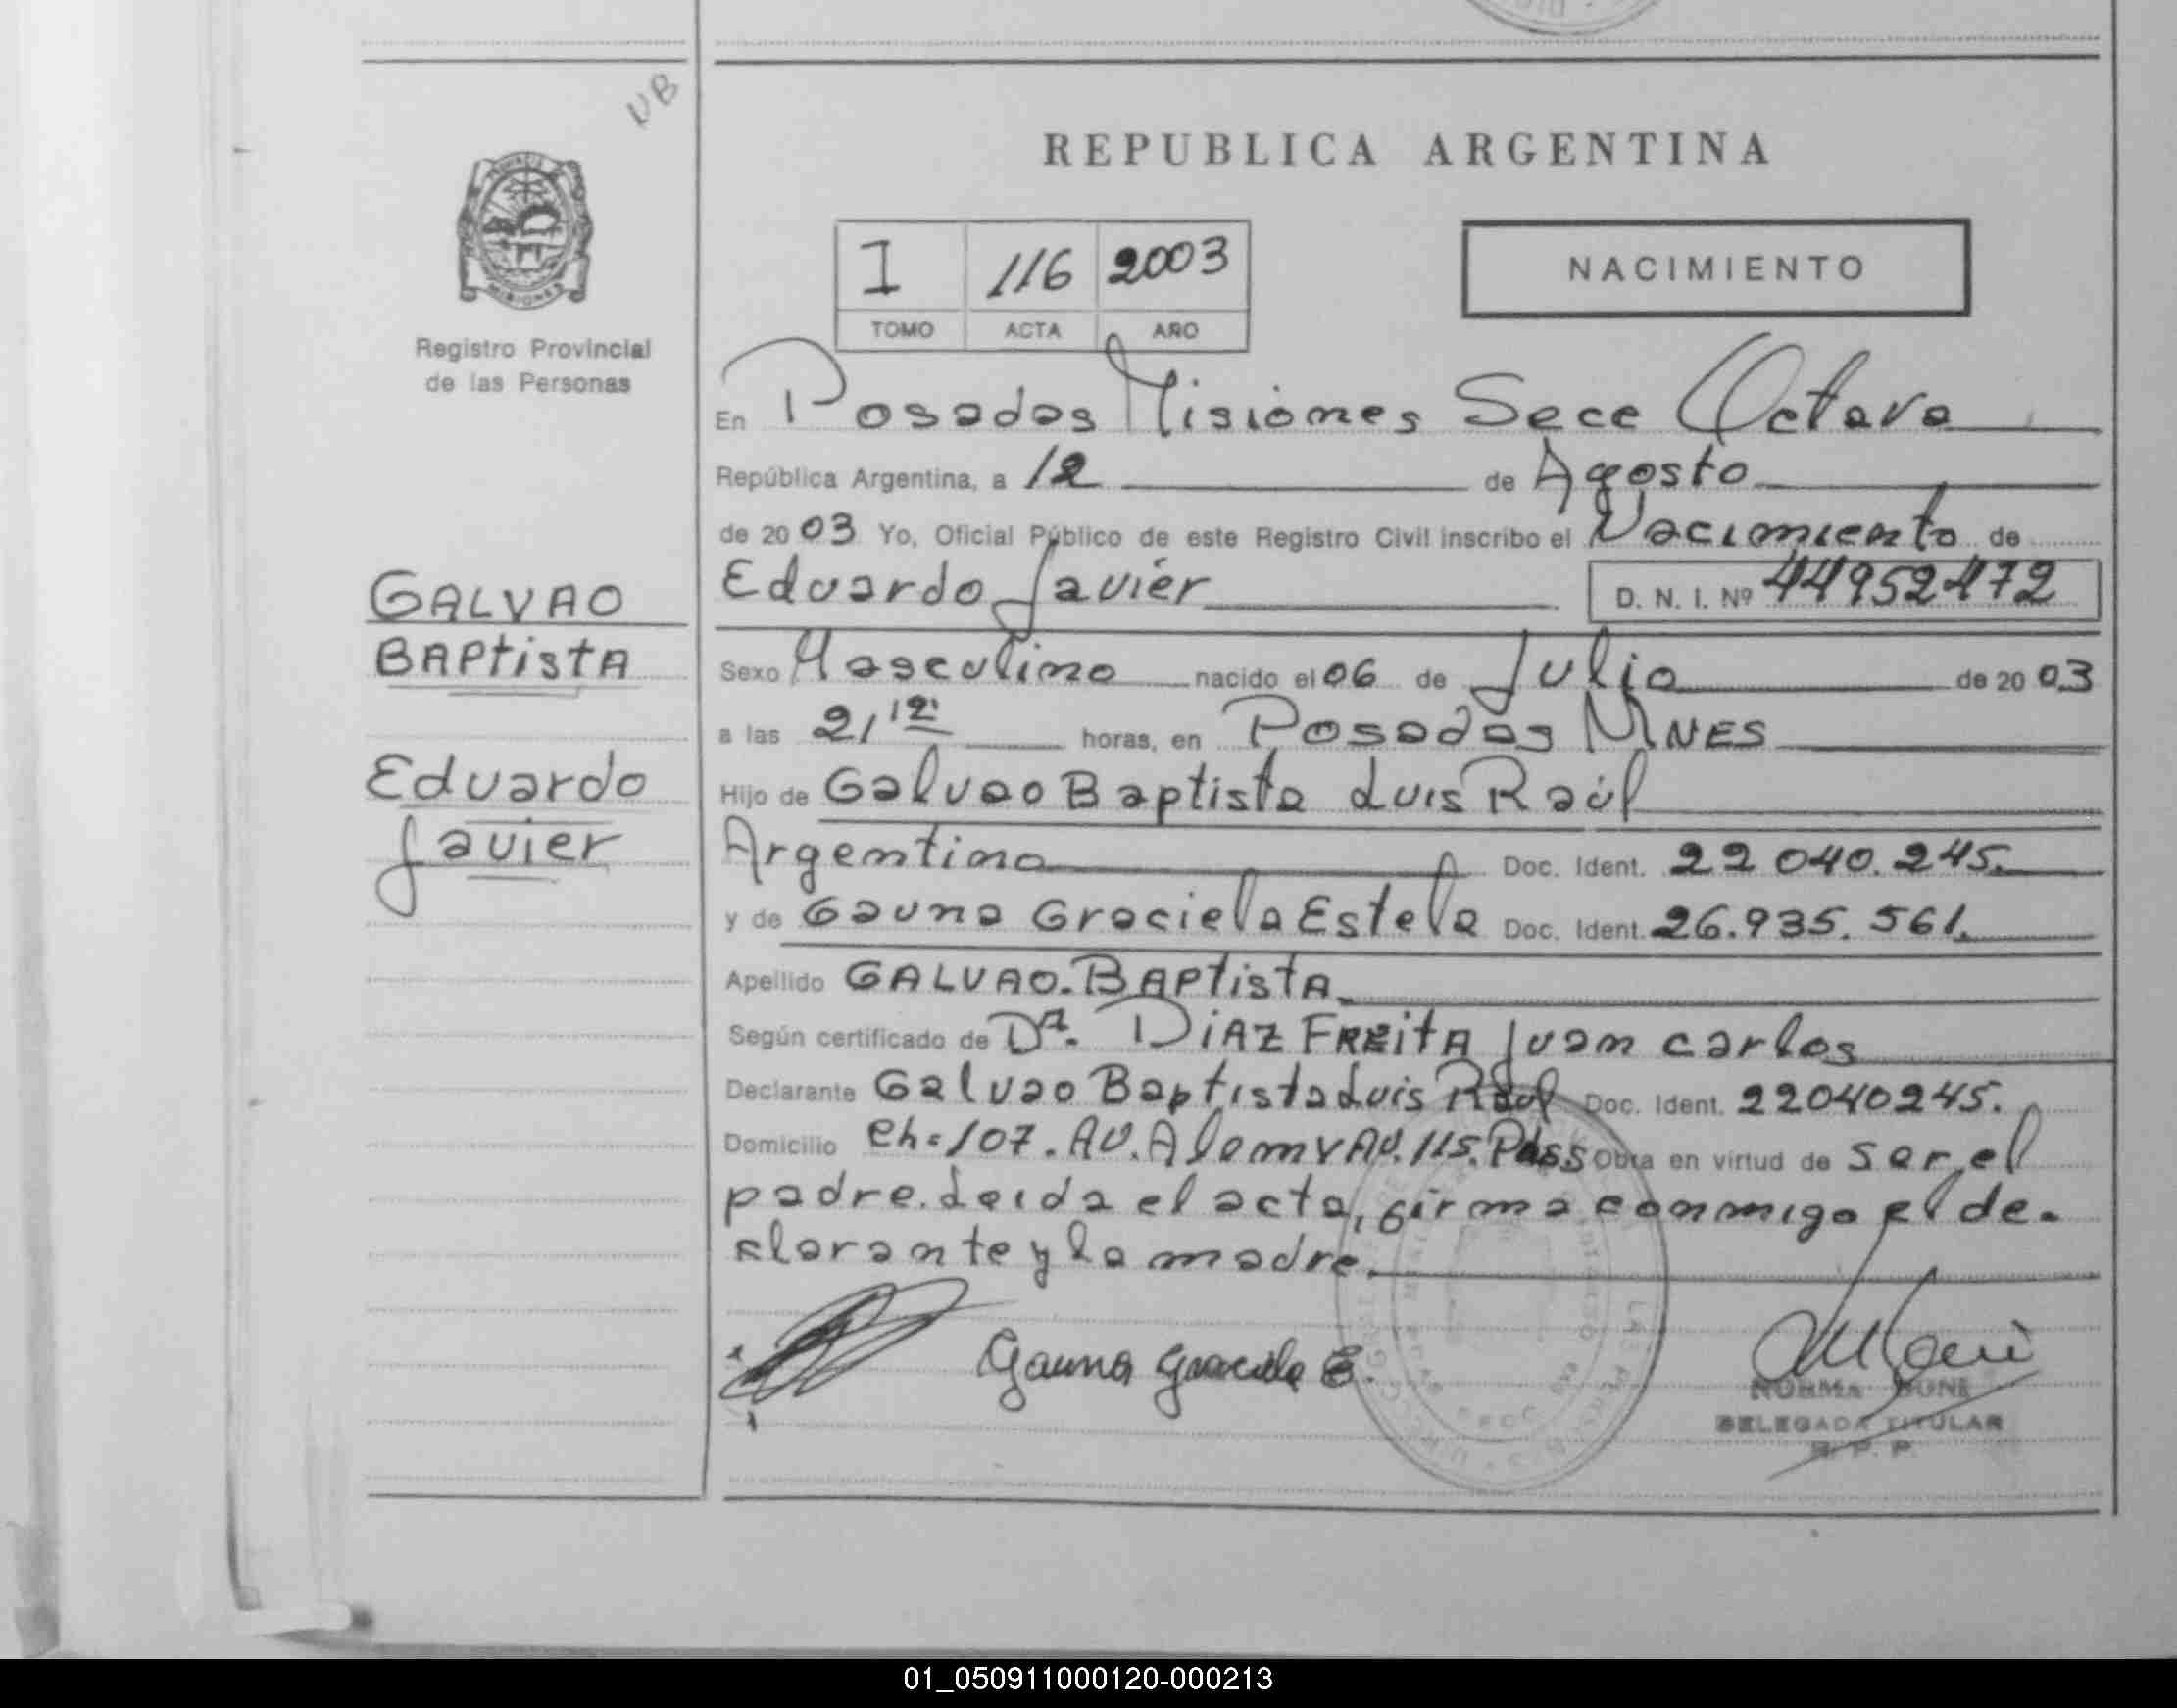 NB
REPUBLICA ARGENTINA
MISIONES
Registro Provincial
de las Personas
I 116 2003
TOMO ACTA AÑO
NACIMIENTO
En Posadas Misiones Sece Octava
República Argentina, a 12 de Agosto
de 2003 Yo, Oficial Público de este Registro Civil inscribo el Nacimiento de
Eduardo Javier D. N. I. Nº 44952472
GALVAO
BAPtistA
Eduardo
Javier
Sexo Masculino nacido el 06 de Julio de 2003
a las 21 12' horas, en Posadas MNES
Hijo de Galvao Baptista Luis Raúl
Argentino Doc. Ident. 22 040.245.
y de Gauna Graciela Estela Doc. Ident. 26.935.561.
Apellido GALVAO.BAPtistA
Según certificado de Dr. DiAZ FREitA Juan carlos
Declarante Galvao Baptista Luis Raúl Doc. Ident. 22040245.
Domicilio Ch=107.AV.Alem y AV.115.Pdas Obra en virtud de ser el
padre. Leida el acta, firma conmigo el de-
clarante y la madre.
Gauna Graciela E.
NORMA BONI
DELEGADA TITULAR
R. P. P.
01_050911000120-000213